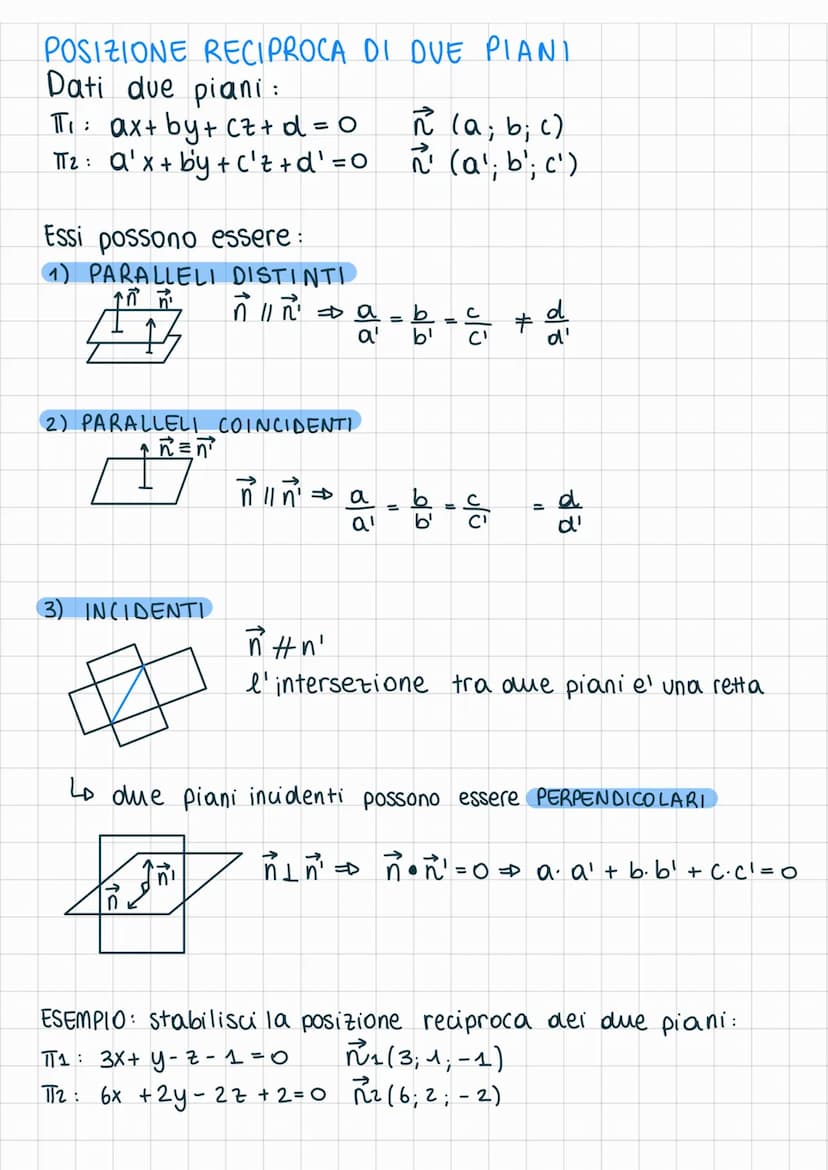 POSIZIONE RECIPROCA DI DUE PIANI
Dati due piani:
π1: ax+by+cz+d=0 n⃗ (a; b; c)
π2: a'x+b'y+c'z+d'=0 n⃗' (a'; b'; c')
Essi possono essere:
1) PARALLELI DISTINTI
n⃗ n⃗'
n⃗ // n⃗' ⇒ a/a' = b/b' = c/c' ≠ d/d'
2) PARALLELI COINCIDENTI
n⃗≡n⃗'
n⃗ // n⃗' ⇒ a/a' = b/b' = c/c' = d/d'
3) INCIDENTI
n⃗ # n'
l'intersezione tra due piani e' una retta
↳ due piani incidenti possono essere PERPENDICOLARI
n⃗ n⃗'
n⃗ ⊥ n⃗' ⇒ n⃗ • n⃗' = 0 ⇒ a·a' + b·b' + c·c' = 0
ESEMPIO: stabilisci la posizione reciproca dei due piani:
π1: 3x+y-z-1=0 n⃗1(3;1;-1)
π2: 6x+2y-2z+2=0 n⃗2(6;2;-2)